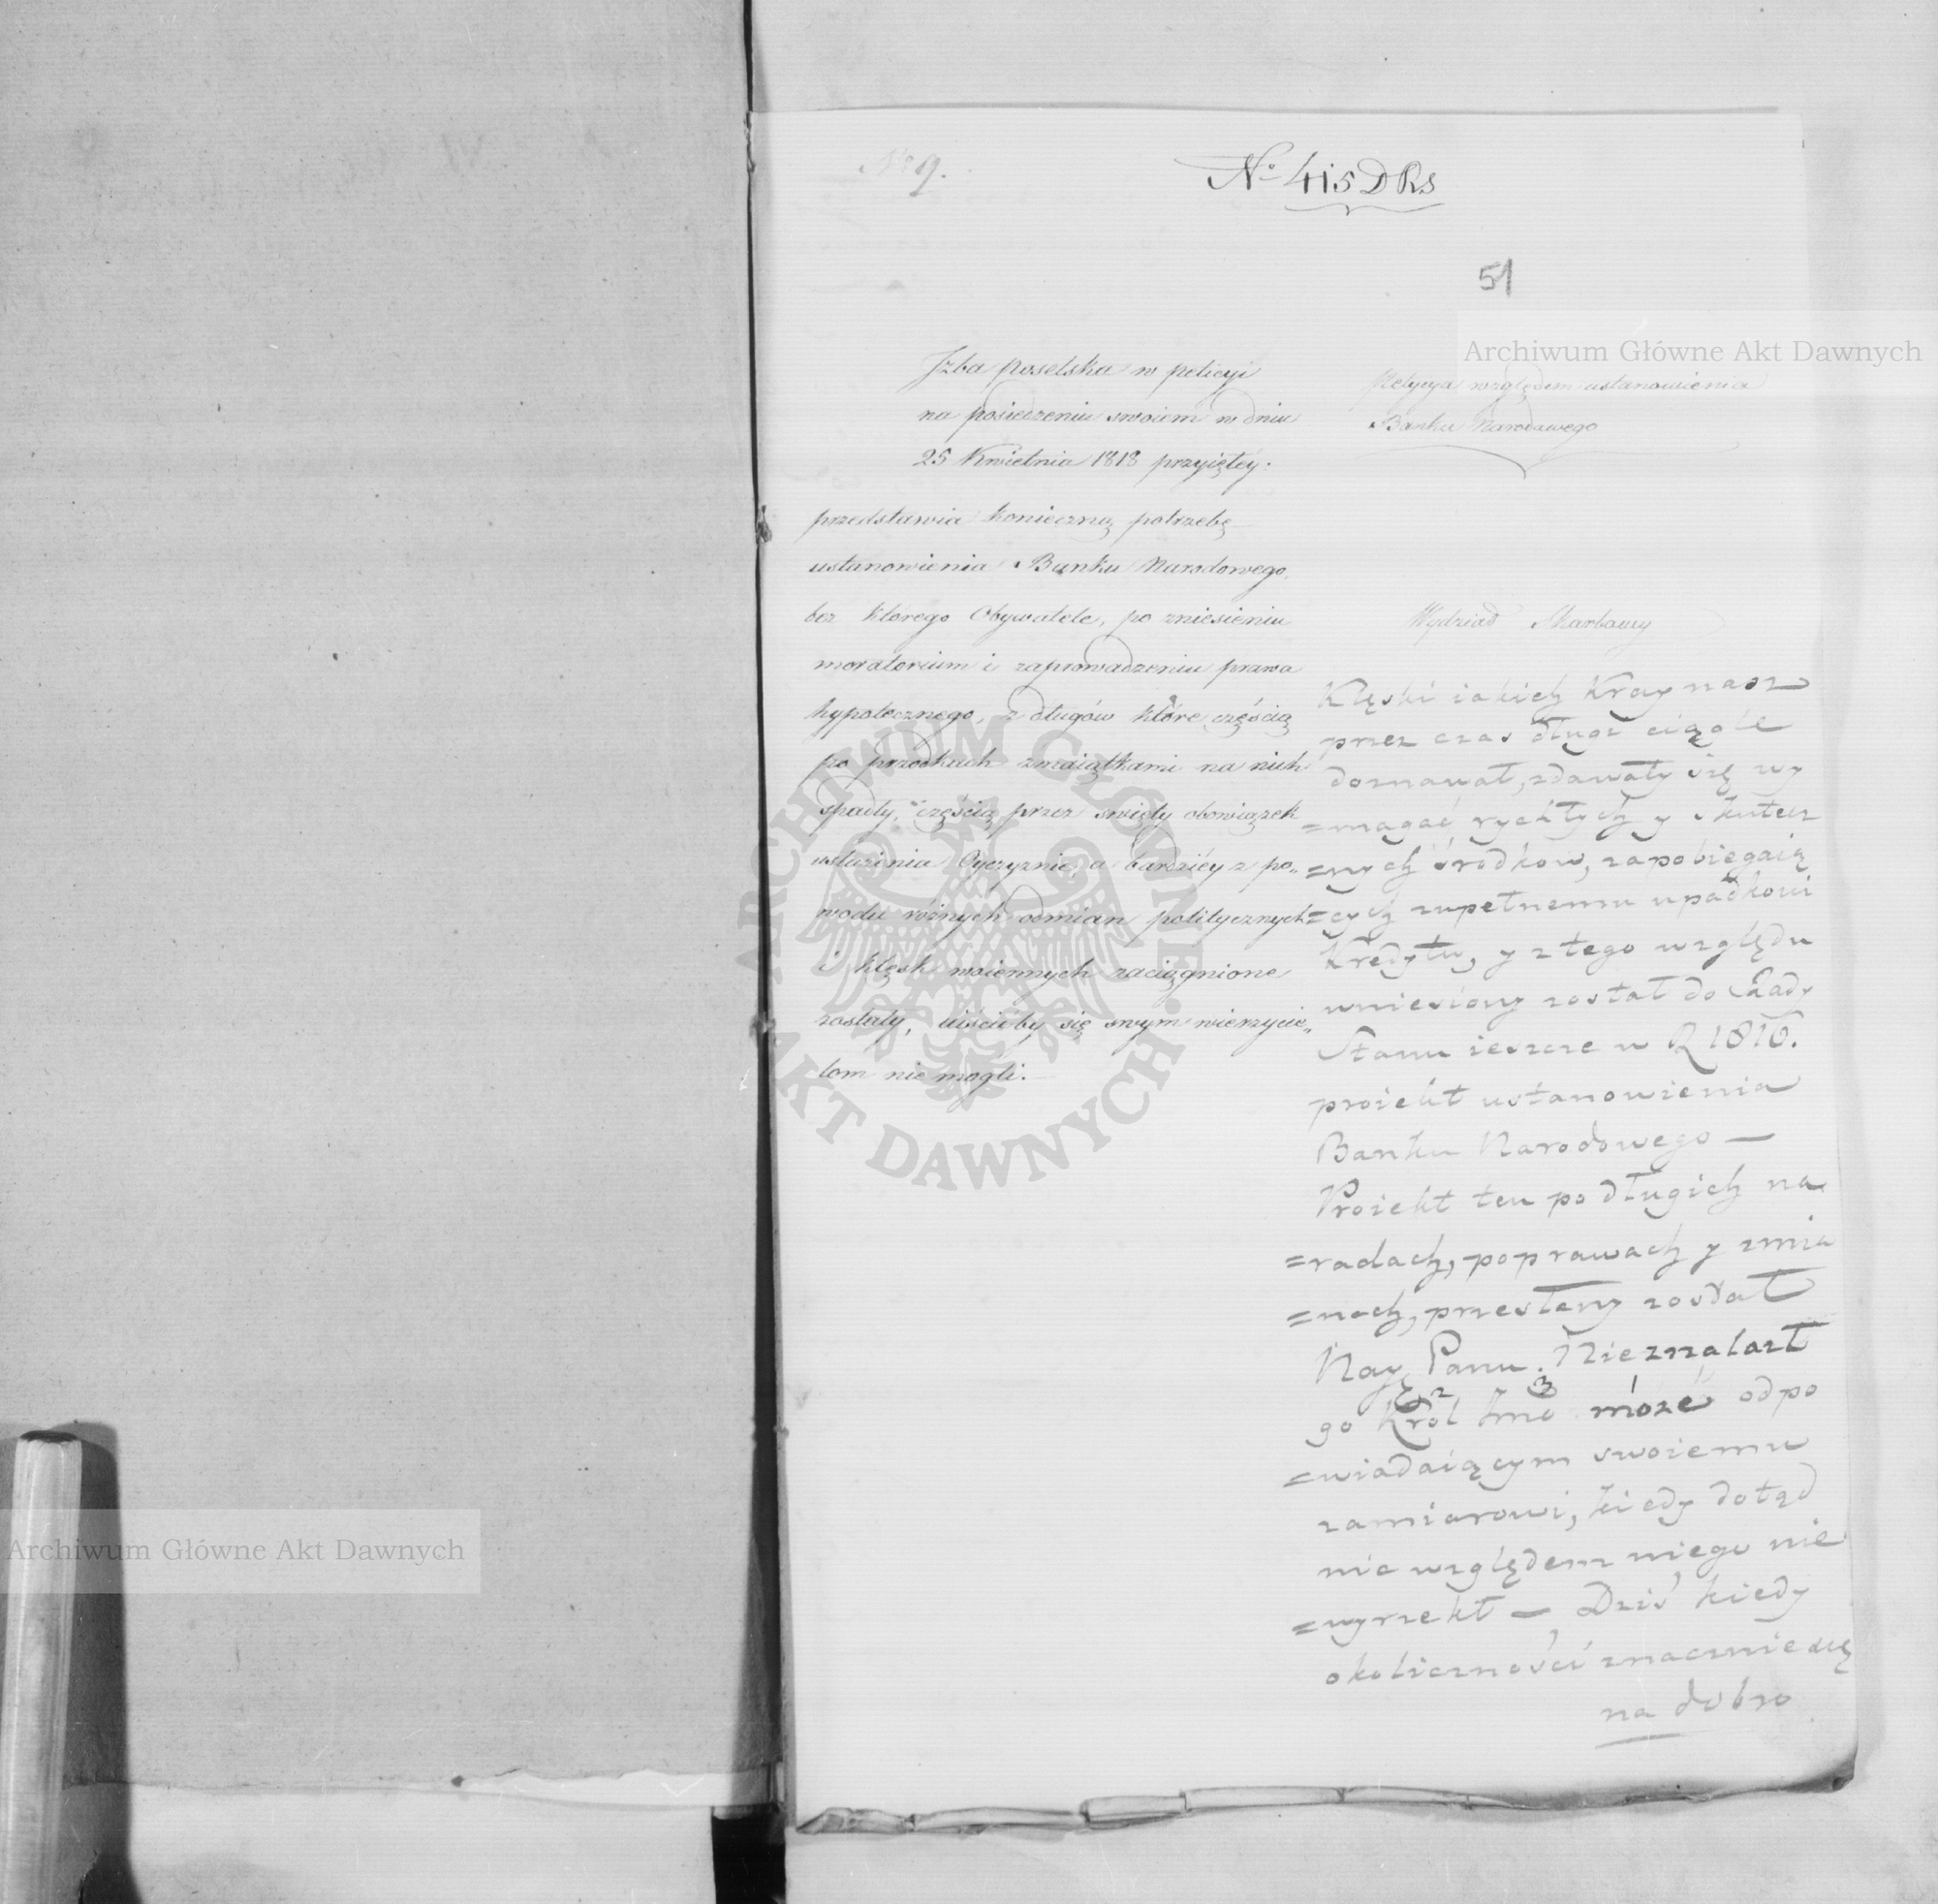 No 9.
No 415 DRS
51
Archiwum Główne Akt Dawnych
Izba poselska w petycyi
na posiedzeniu swoiem w dniu
25 Kwietnia 1818 przyiętéy.
przedstawia konieczną potrzebę
ustanowienia Banku Narodowego,
bez którego Obywatele, po zniesieniu
moratorium i zaprowadzeniu prawa
hypotecznego, z długów które częścią
po przodkach z maiątkami na nich
spadły, częścią przez swięty obowiązek
usłużenia Oyczyznie, a bardziéy z po„
wodu różnych odmian politycznych
i klęsk woiennych zaciągnione
zostały, uiścićby się swym wierzycie„
lom nie mogli.
Petycya względem ustanowienia
Banku Narodowego
Wydział Skarbowy
Klęski iakich Kray nasz
przez czas długi ciągle
doznawał, zdawały się wy
=magać rychłych y skutecz
=nych środków, zapobiegaią
=cych zupełnemu upadkowi
Kredytu, y z tego względu
wniesiony został do Rady
Stanu ieszcze w R 1816.
proiekt ustanowienia
Banku Narodowego —
Proiekt ten po długich na
=radach, poprawach y zmia
=nach, przesłany został
Nay Panu. Nie znalazł
go Król Jmć może odpo
2 3 1
=wiadaiącym swoiemu
zamiarowi, kiedy dotąd
nic względem niego nie
=wyrzekł — Dziś kiedy
okoliczności znacznie się
na dobro
ARCHIWUM GŁÓWNE AKT DAWNYCH.
Archiwum Główne Akt Dawnych